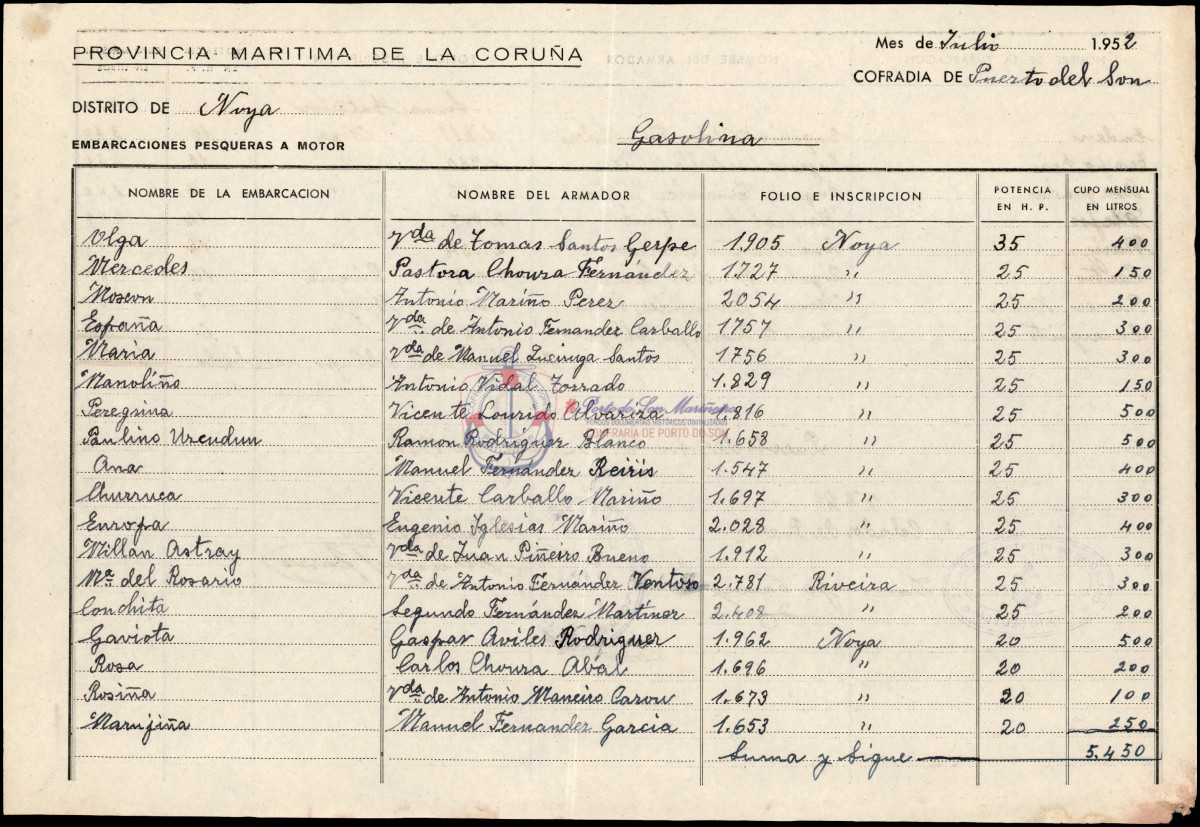 PROVINCIA MARITIMA DE LA CORUÑA
Mes de Julio 1.952
COFRADIA DE Puerto del Son
DISTRITO DE Noya
Gasolina
EMBARCACIONES PESQUERAS A MOTOR
NOMBRE DE LA EMBARCACION NOMBRE DEL ARMADOR FOLIO E INSCRIPCION POTENCIA EN H. P. CUPO MENSUAL EN LITROS
Olga Vda de Tomas Santos Gerpe 1.905 Noya 35 400
Mercedes Pastora Choura Fernández 1727 " 25 150
Antonio Mariño Perez 2054 " 25 200
España Vda de Antonio Fernandez Carballo 1757 " 25 300
Maria Vda de Manuel Santos 1756 " 25 300
Manoliño Antonio Vidal Torrado 1.829 " 25 150
Peregrina Vicente Lourido Alvariza 1.816 " 25 500
Paulino Uzcudun Ramon Rodríguez Blanco 1.658 " 25 500
Ana Manuel Fernández Reiris 1.547 " 25 400
Churruca Vicente Carballo Mariño 1.697 " 25 300
Europa Eugenio Iglesias Mariño 2.028 " 25 400
Millan Astray Vda de Juan Piñeiro Bueno 1.912 " 25 300
Mª del Rosario Vda de Antonio Fernández Ventoso 2.781 Riveira 25 300
Conchita Segundo Fernández Martinez 2.408 " 25 200
Gaviota Gaspar Aviles Rodriguez 1.962 Noya 20 500
Rosa Carlos Choura Abal 1.696 " 20 200
Rosiña Vda de Antonio Maneiro Carou 1.673 " 20 100
Marujiña Manuel Fernandez Garcia 1.653 " 20 250
Suma y Sigue 5.450
Porto do Son Mariñeiro
FONDOS DOCUMENTAIS HISTÓRICOS DIGITALIZADOS
CONFRARÍA DE PORTO DO SON